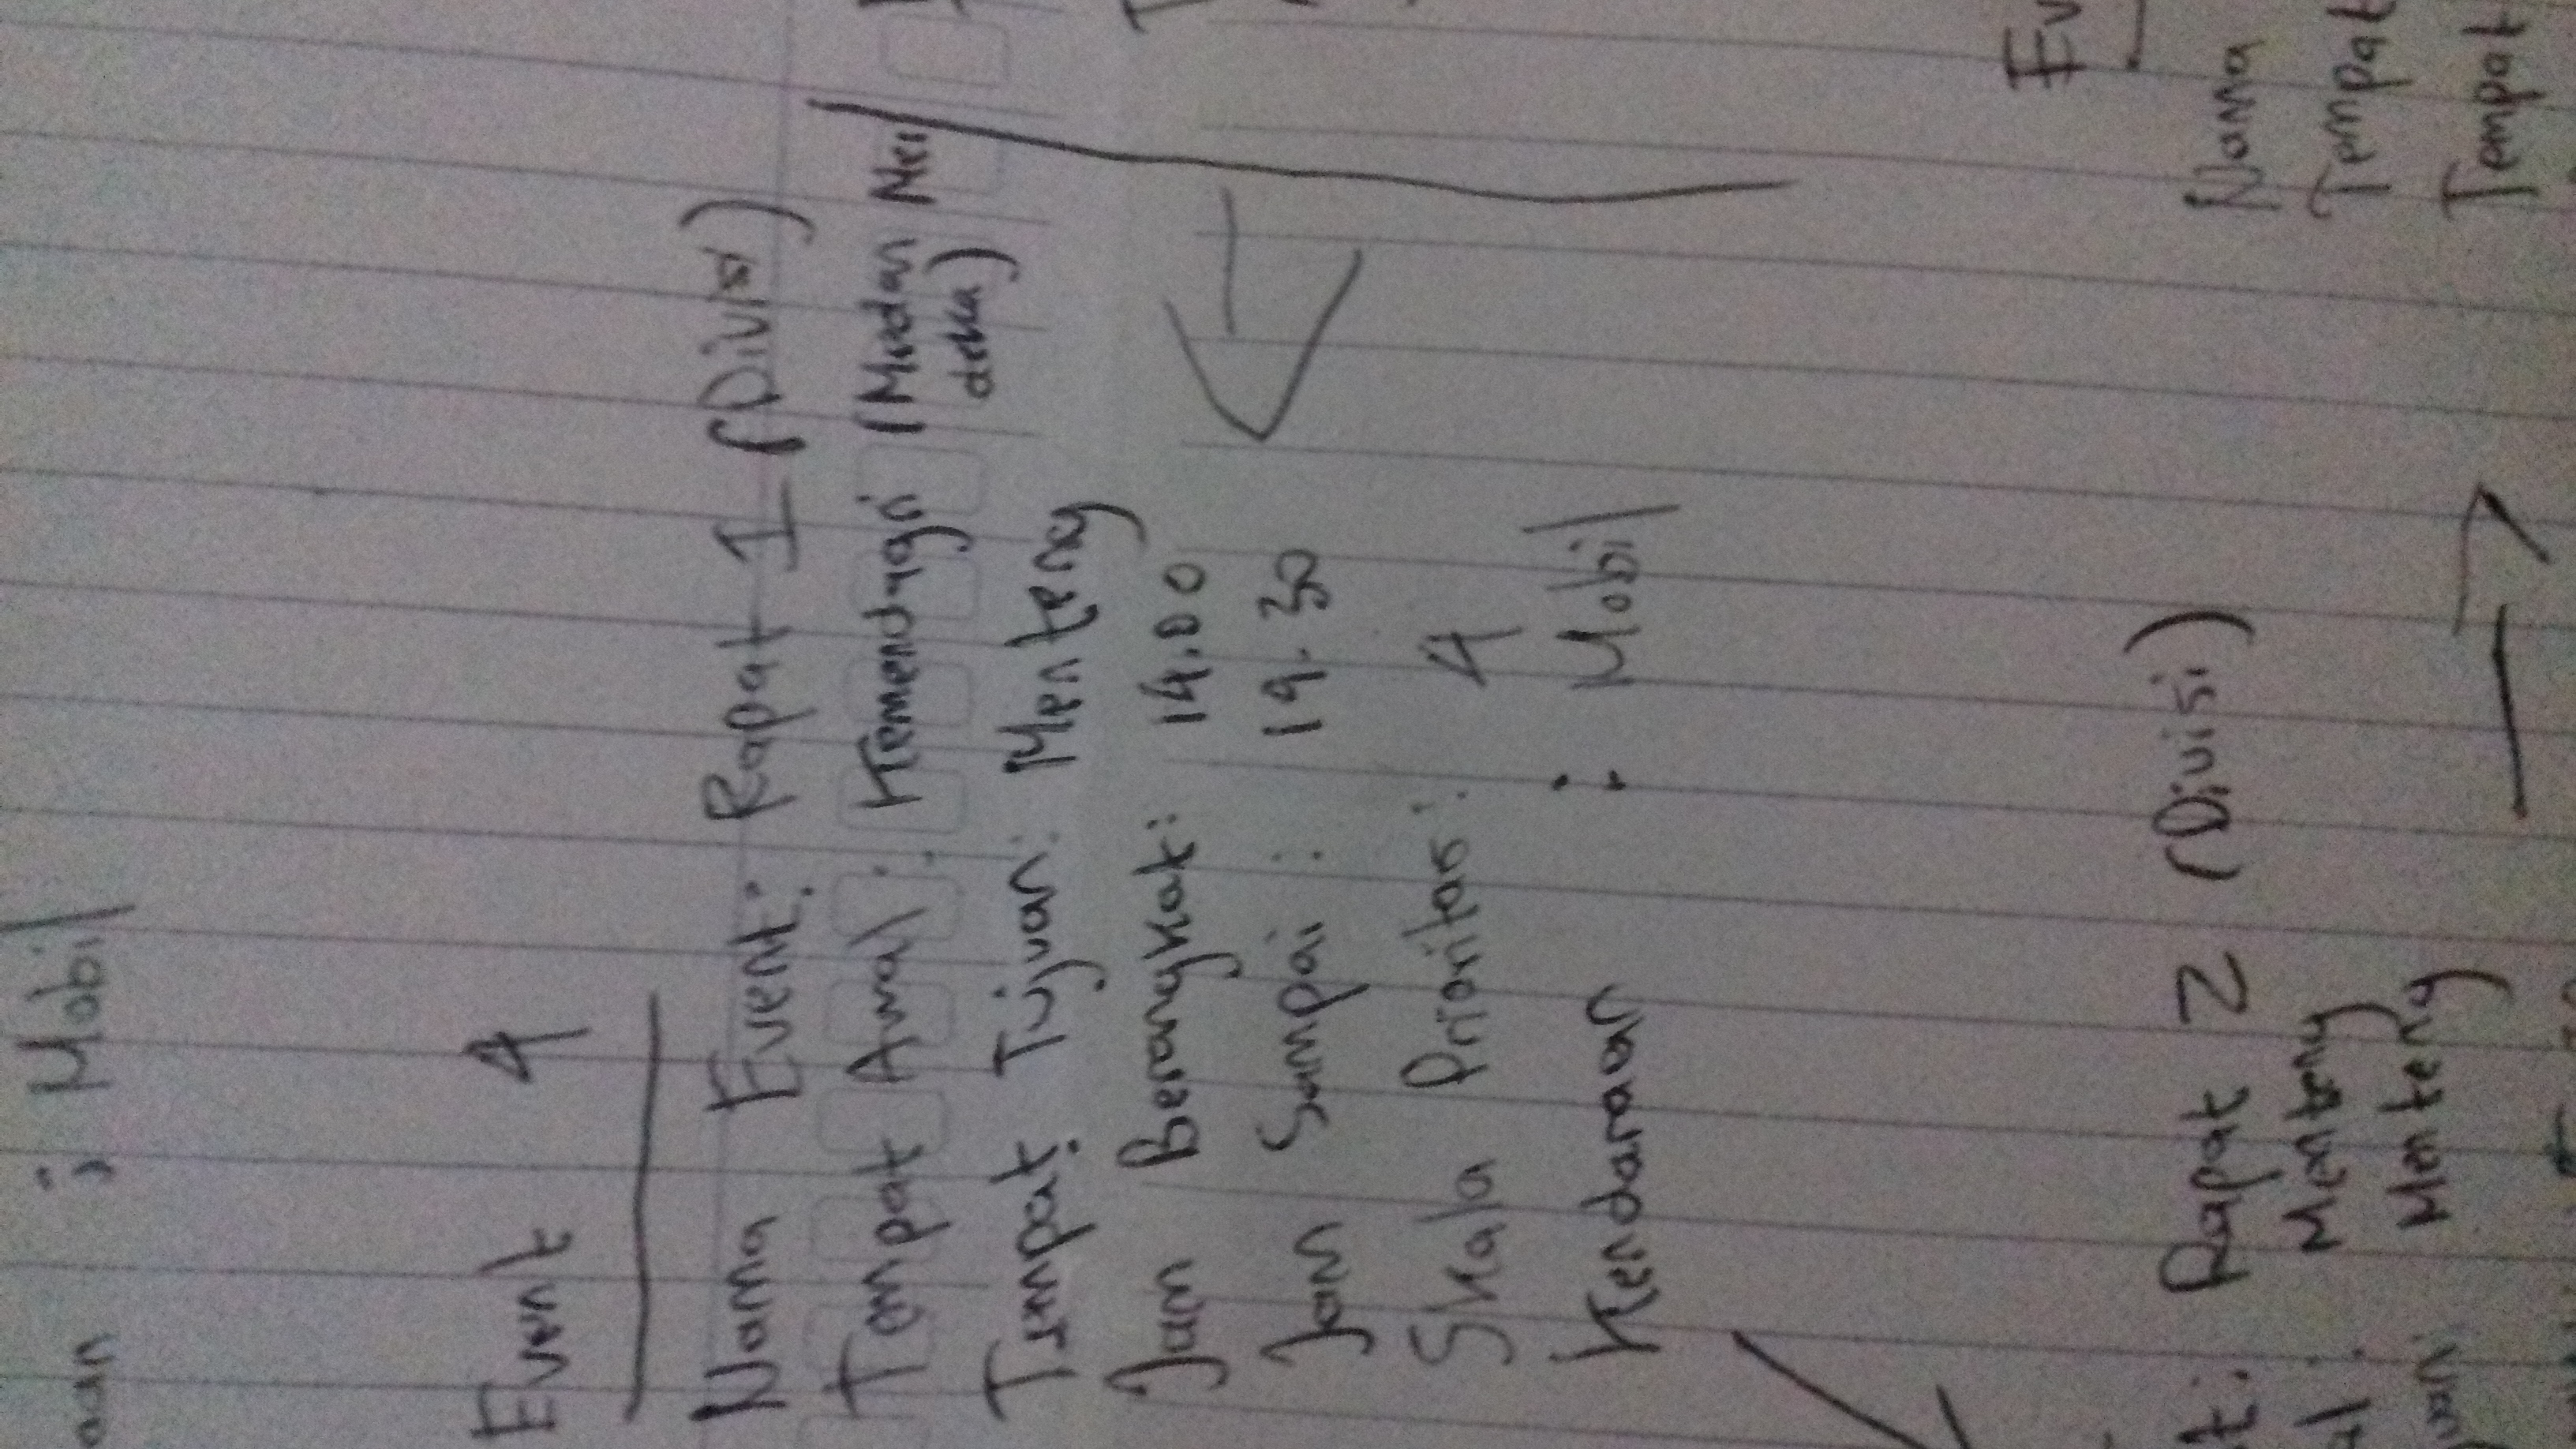 aan : Mobil
Event 4
Nama Event: Rapat I (Divisi)
Tempat Awal: Kemendagri (Medan Mer
deka)
Tempat Tujuan: Menteng
Jam Berangkat: 14.00
Jam Sampai: 14.30
Skala Prioritas: 4
Kendaraan : Mobil
Ev
t: Rapat 2 (Divisi)
Nama
al: Menteng
Tempat
uan: Menteng
Tempat